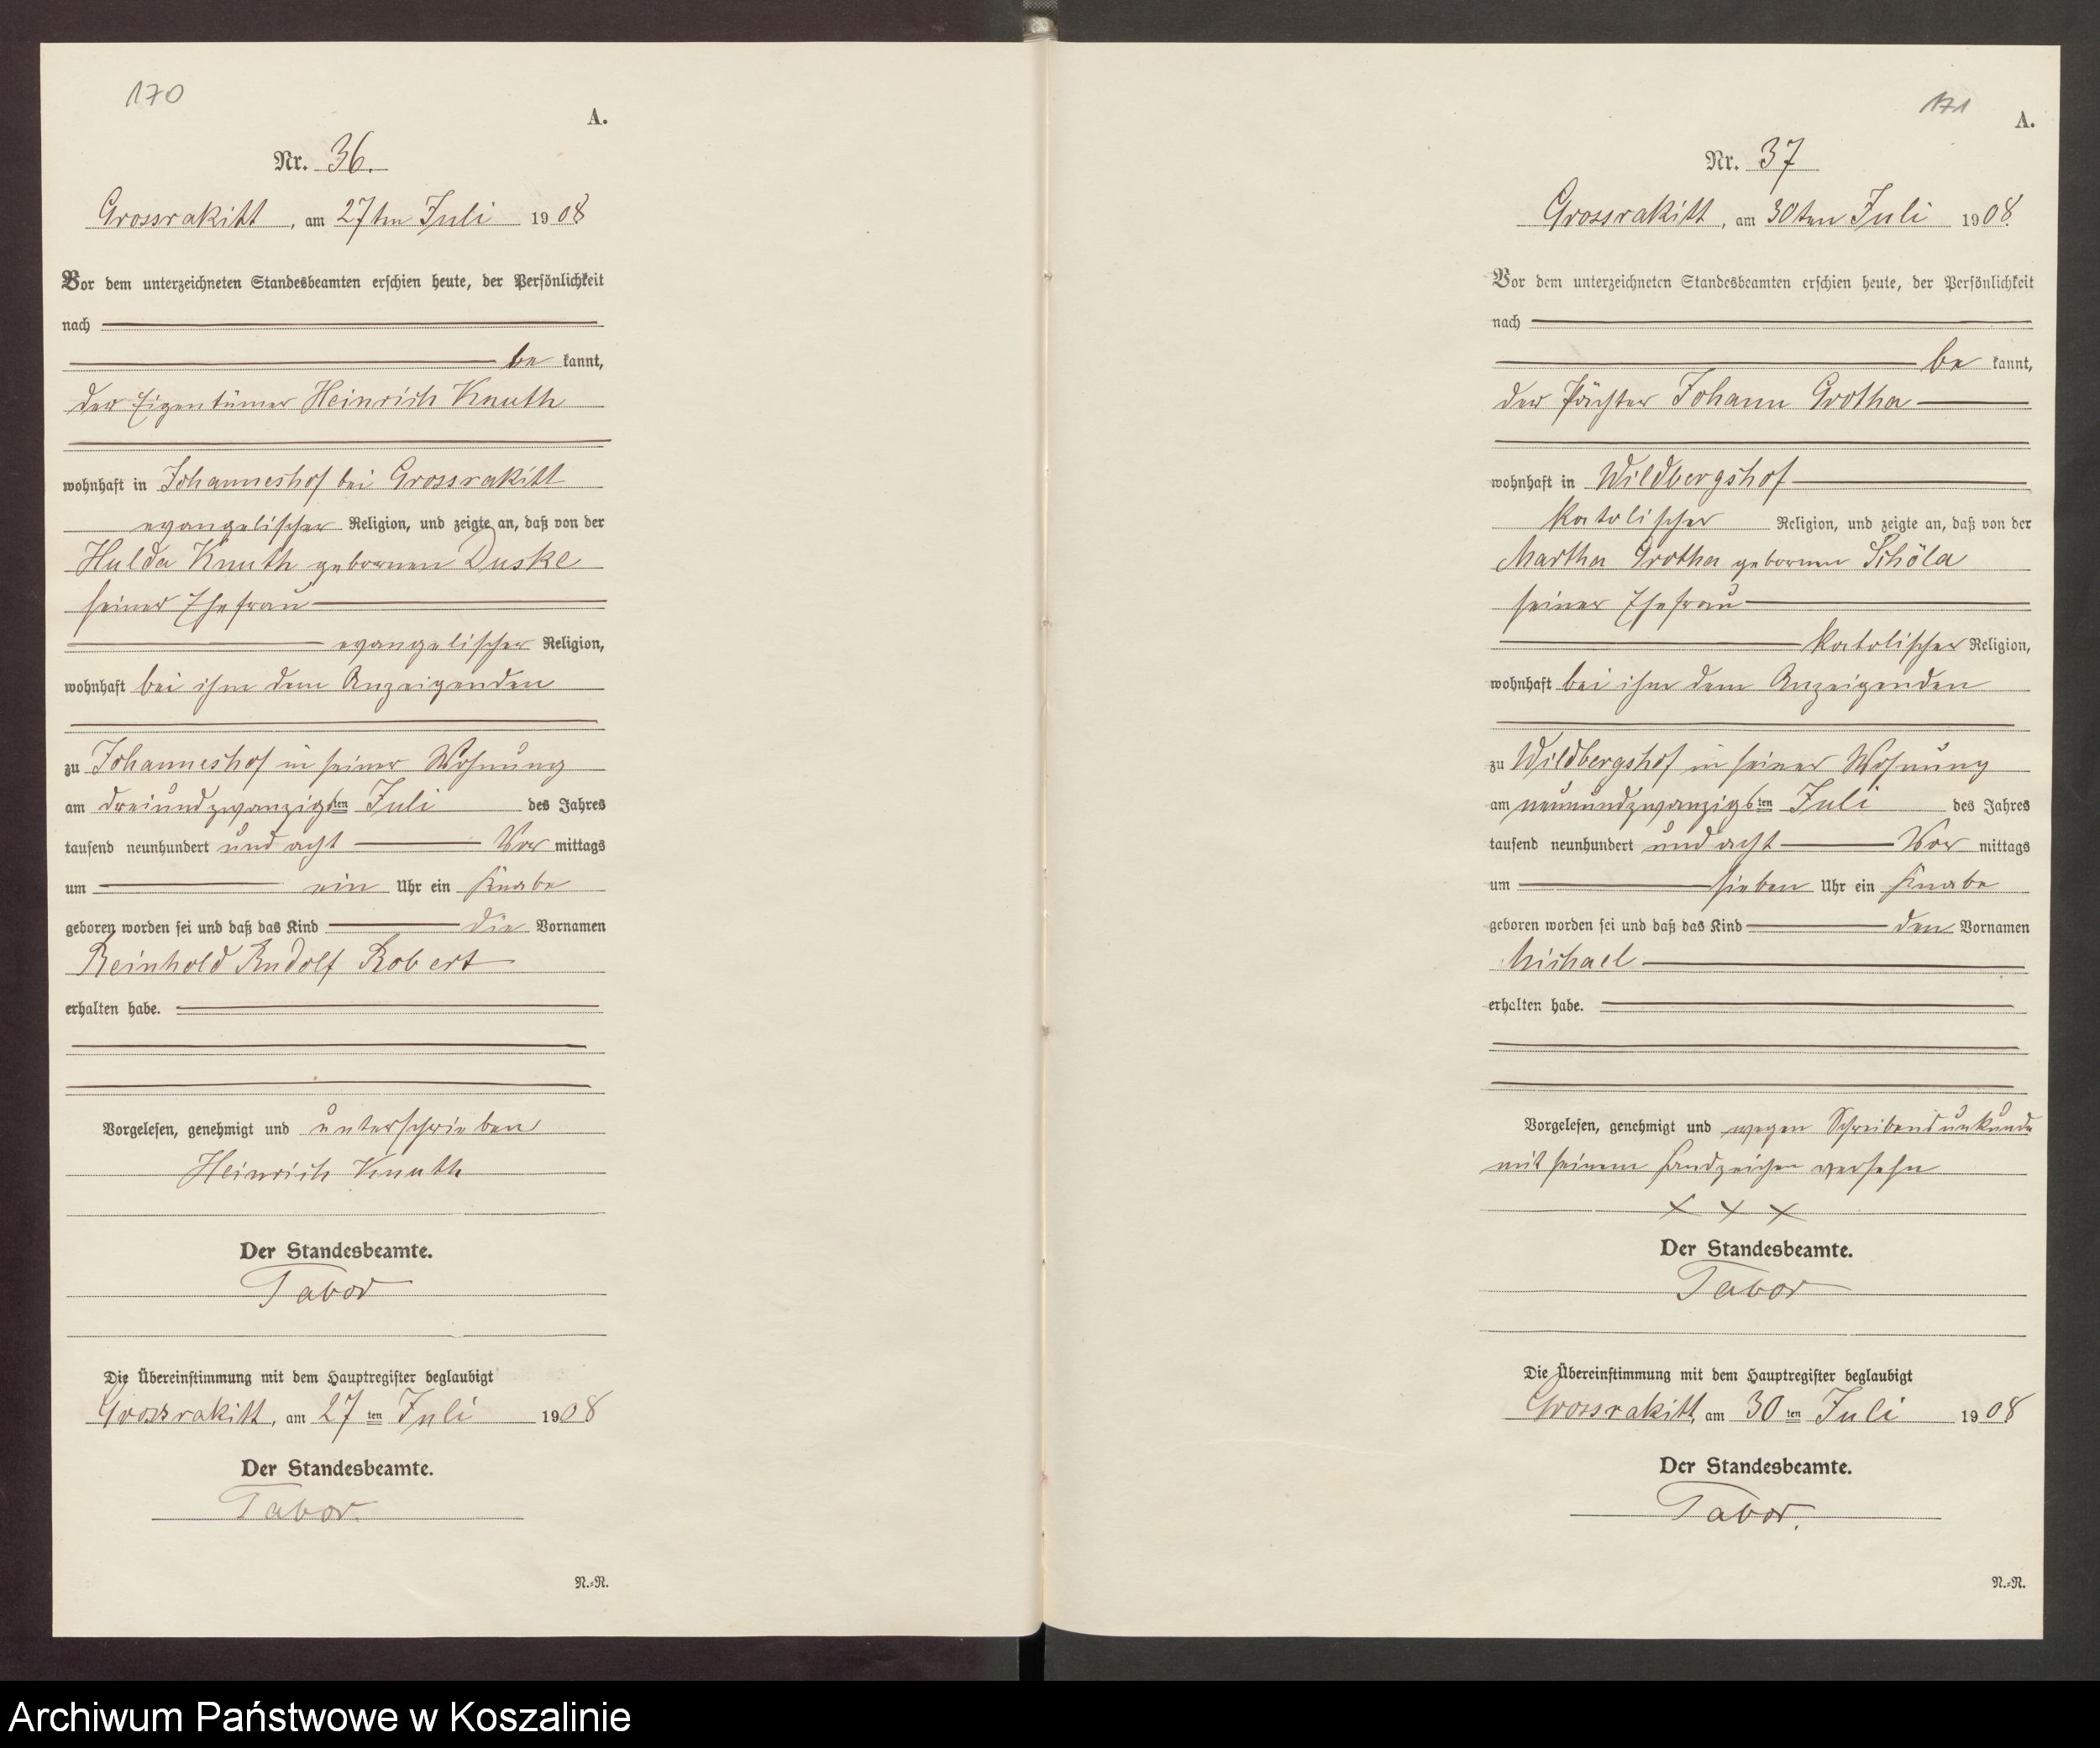 170
A.
Nr. 36.
Grossrakitt, am 27ten Juli 1908
Vor dem unterzeichneten Standesbeamten erschien heute, der Persönlichkeit
nach
be kannt,
der Eigentümer Heinrich Knuth
wohnhaft in Johanneshof bei Grossrakitt
evangelischer Religion, und zeigte an, daß von der
Hulda Knuth gebornen Duske
seiner Ehefrau
evangelischer Religion,
wohnhaft bei ihm dem Anzeigenden
zu Johanneshof in seiner Wohnung
am dreiundzwanzigsten Juli des Jahres
tausend neunhundert und acht Vor mittags
um ein Uhr ein Knabe
geboren worden sei und daß das Kind die Vornamen
Reinhold Rudolf Robert
erhalten habe.
Vorgelesen, genehmigt und unterschrieben
Heinrich Knuth
Der Standesbeamte.
Tabor
Die Übereinstimmung mit dem Hauptregister beglaubigt
Grossrakitt, am 27ten Juli 1908
Der Standesbeamte.
Tabor.
N.-N.
171
A.
Nr. 37
Grossrakitt, am 30ten Juli 1908.
Vor dem unterzeichneten Standesbeamten erschien heute, der Persönlichkeit
nach
be kannt,
der Pächter Johann Grotha
wohnhaft in Wildbergshof
katolischer Religion, und zeigte an, daß von der
Martha Grotha gebornen Schöla
seiner Ehefrau
katolischer Religion,
wohnhaft bei ihm dem Anzeigenden
zu Wildbergshof in seiner Wohnung
am neunundzwanzigsten Juli des Jahres
tausend neunhundert und acht Vor mittags
um sieben Uhr ein Knabe
geboren worden sei und daß das Kind den Vornamen
Michael
erhalten habe.
Vorgelesen, genehmigt und wegen Schreibensunkunde
mit seinem Handzeichen versehn
x x x
Der Standesbeamte.
Tabor
Die Übereinstimmung mit dem Hauptregister beglaubigt
Grossrakitt, am 30ten Juli 1908
Der Standesbeamte.
Tabor.
N.-N.
Archiwum Państwowe w Koszalinie